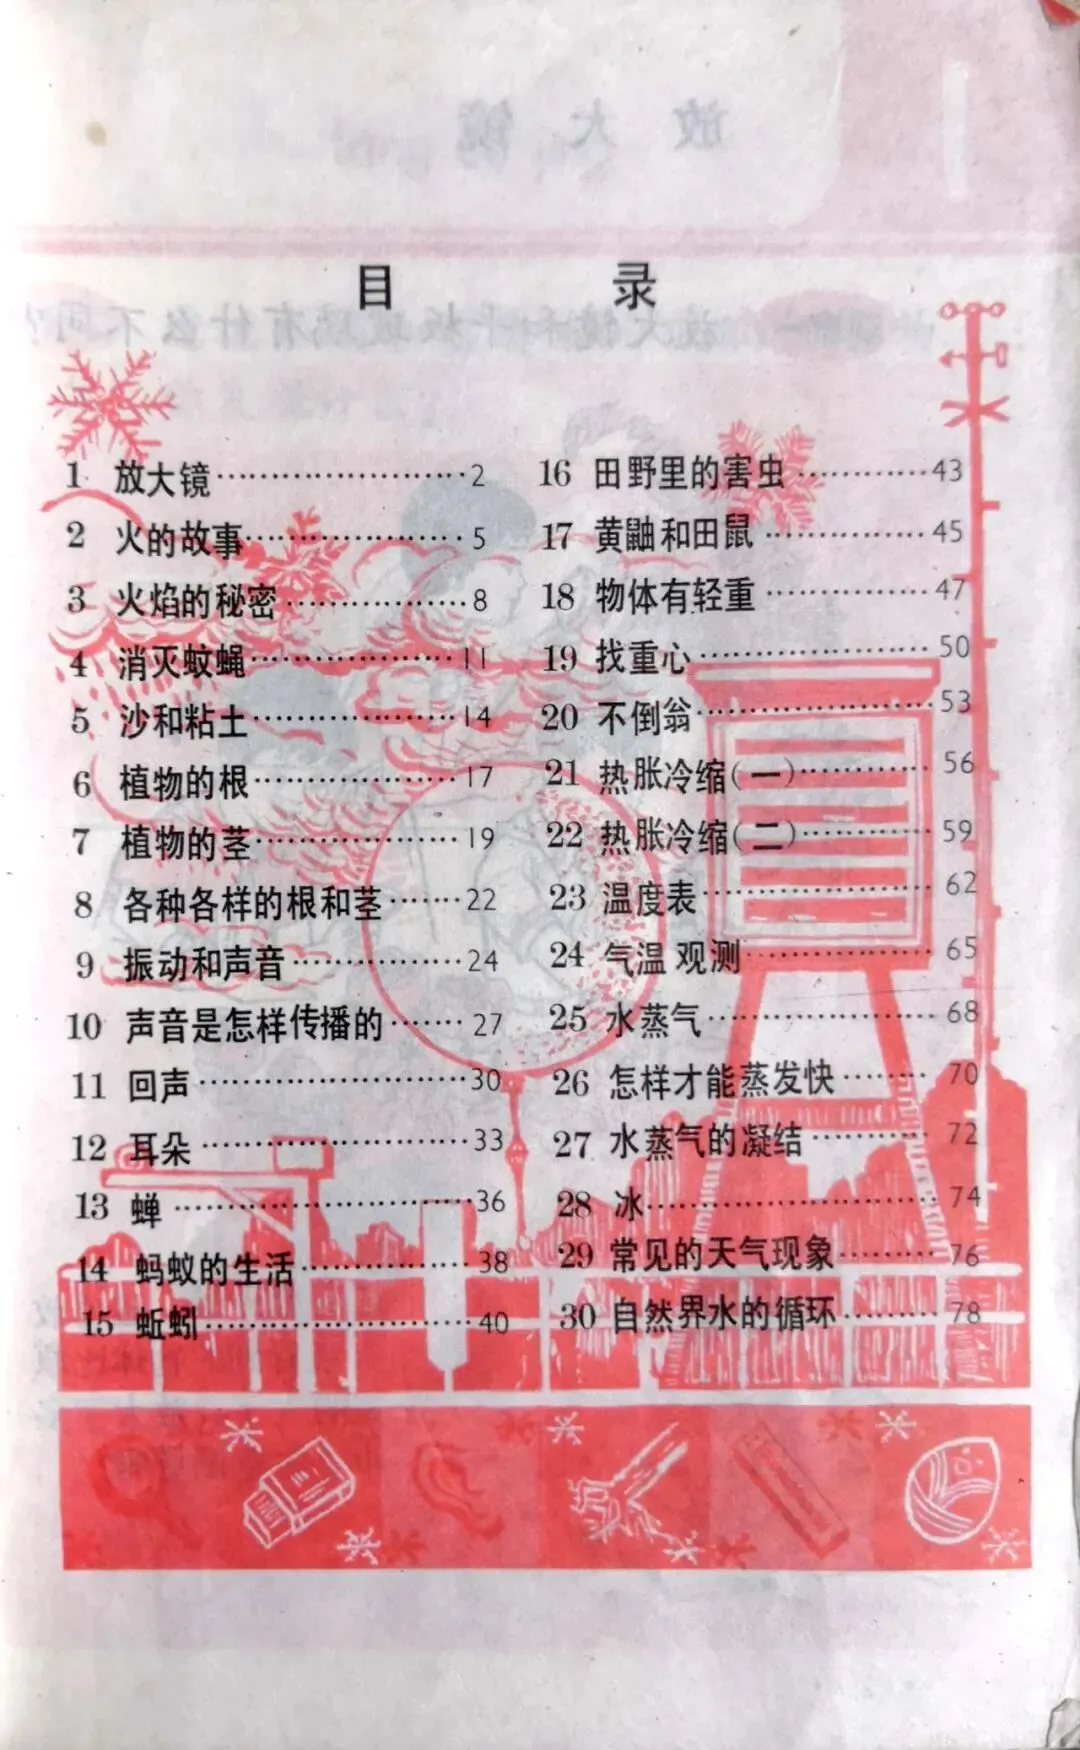 目 录
1 放大镜……………………2
2 火的故事…………………5
3 火焰的秘密………………8
4 消灭蚊蝇…………………11
5 沙和粘土…………………14
6 植物的根…………………17
7 植物的茎…………………19
8 各种各样的根和茎………22
9 振动和声音………………24
10 声音是怎样传播的………27
11 回声………………………30
12 耳朵………………………33
13 蝉…………………………36
14 蚂蚁的生活………………38
15 蚯蚓………………………40
16 田野里的害虫……………43
17 黄鼬和田鼠………………45
18 物体有轻重………………47
19 找重心……………………50
20 不倒翁……………………53
21 热胀冷缩(一)……………56
22 热胀冷缩(二)……………59
23 温度表……………………62
24 气温观测…………………65
25 水蒸气……………………68
26 怎样才能蒸发快…………70
27 水蒸气的凝结……………72
28 冰…………………………74
29 常见的天气现象…………76
30 自然界水的循环…………78